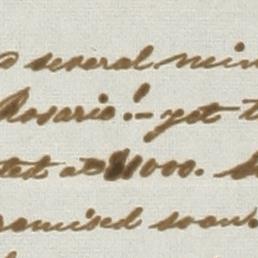 several
Rosario!- yet
ted at $1000.
romised soon.